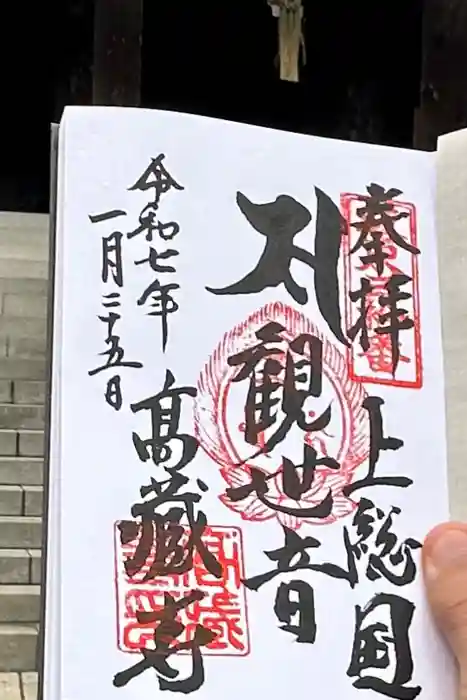 奉拝
上総国
観世音
高蔵寺
令和七年
一月二十五日